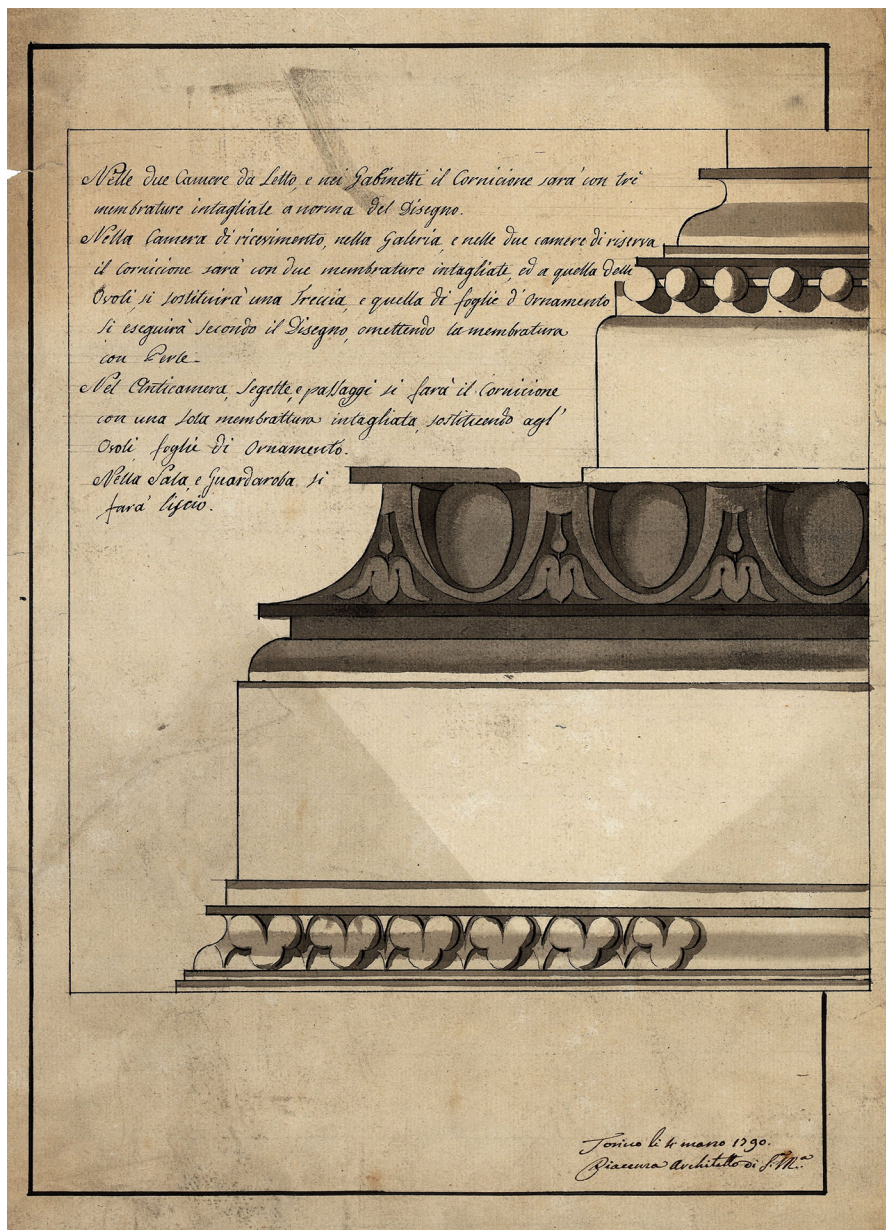 Nelle due Camere da Letto, e nei Gabinetti il Cornicione sarà con trè
membrature intagliate a norma del Disegno.
Nella Camera di ricevimento, nella Galeria, e nelle due camere di riserva
il Cornicione sarà con due membrature intagliate, ed a quella delli
Ovoli, si sostituirà una Treccia, e quella di foglie d'Ornamento
si eseguirà secondo il Disegno, omettendo la membratura
con Perle.
Nel Anticamera, Segette, e passaggi si farà il Cornicione
con una sola membrattura intagliata, sostituendo agl'
Ovoli foglie di Ornamento.
Nella Sala, e Guardaroba si
farà liscio.
Torino li 4 marzo 1790.
Piacenza Architetto di S. M.a